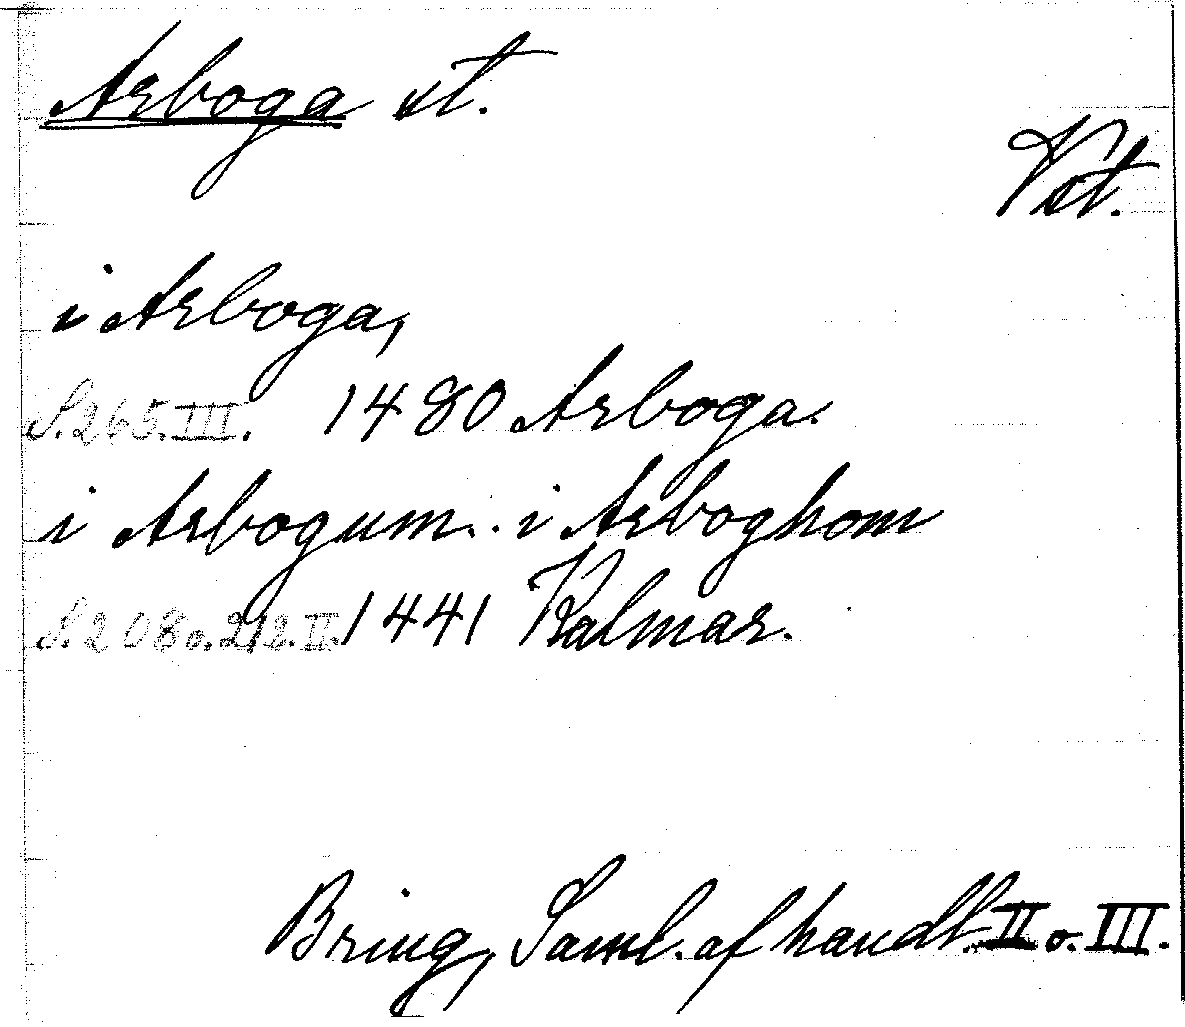 Arboga st.
Vst.
i Arboga,
S. 265. III. 1480 Arboga.
i Arbogum. i Arboghom
S. 208 o. 212. II. 1441 Kalmar.
Bring, Saml. af handl. II o. III.